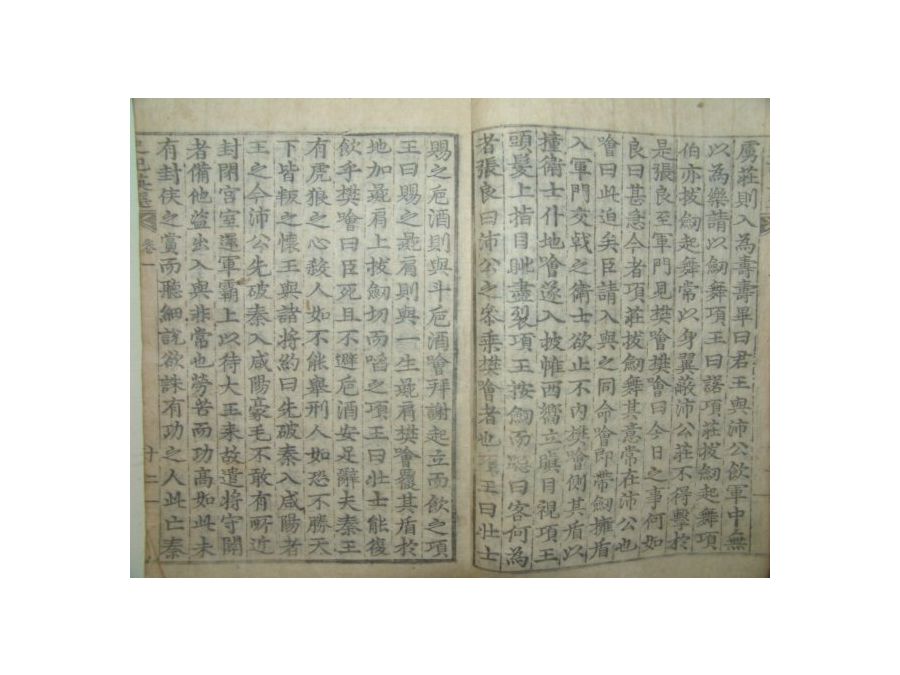 虜莊則入為壽壽畢曰君王與沛公飲軍中無
以為樂請以劒舞項王曰諾項莊拔劒起舞項
伯亦拔劒起舞常以身翼蔽沛公莊不得擊於
是張良至軍門見樊噲樊噲曰今日之事何如
良曰甚急今者項莊拔劒舞其意常在沛公也
噲曰此迫矣臣請入與之同命噲即帶劒擁盾
入軍門交戟之衛士欲止不內樊噲側其盾以
撞衛士仆地噲遂入披帷西嚮立瞋目視項王
頭髮上指目眥盡裂項王按劒而跽曰客何為
者張良曰沛公之參乘樊噲者也項王曰壯士
賜之巵酒則與斗巵酒噲拜謝起立而飲之項
王曰賜之彘肩則與一生彘肩樊噲覆其盾於
地加彘肩上拔劒切而啗之項王曰壯士能復
飲乎樊噲曰臣死且不避巵酒安足辭夫秦王
有虎狼之心殺人如不能舉刑人如恐不勝天
下皆叛之懷王與諸將約曰先破秦入咸陽者
王之今沛公先破秦入咸陽豪毛不敢有所近
封閉宮室還軍霸上以待大王來故遣將守關
者備他盜出入與非常也勞苦而功高如此未
有封侯之賞而聽細說欲誅有功之人此亡秦
卷一
十二